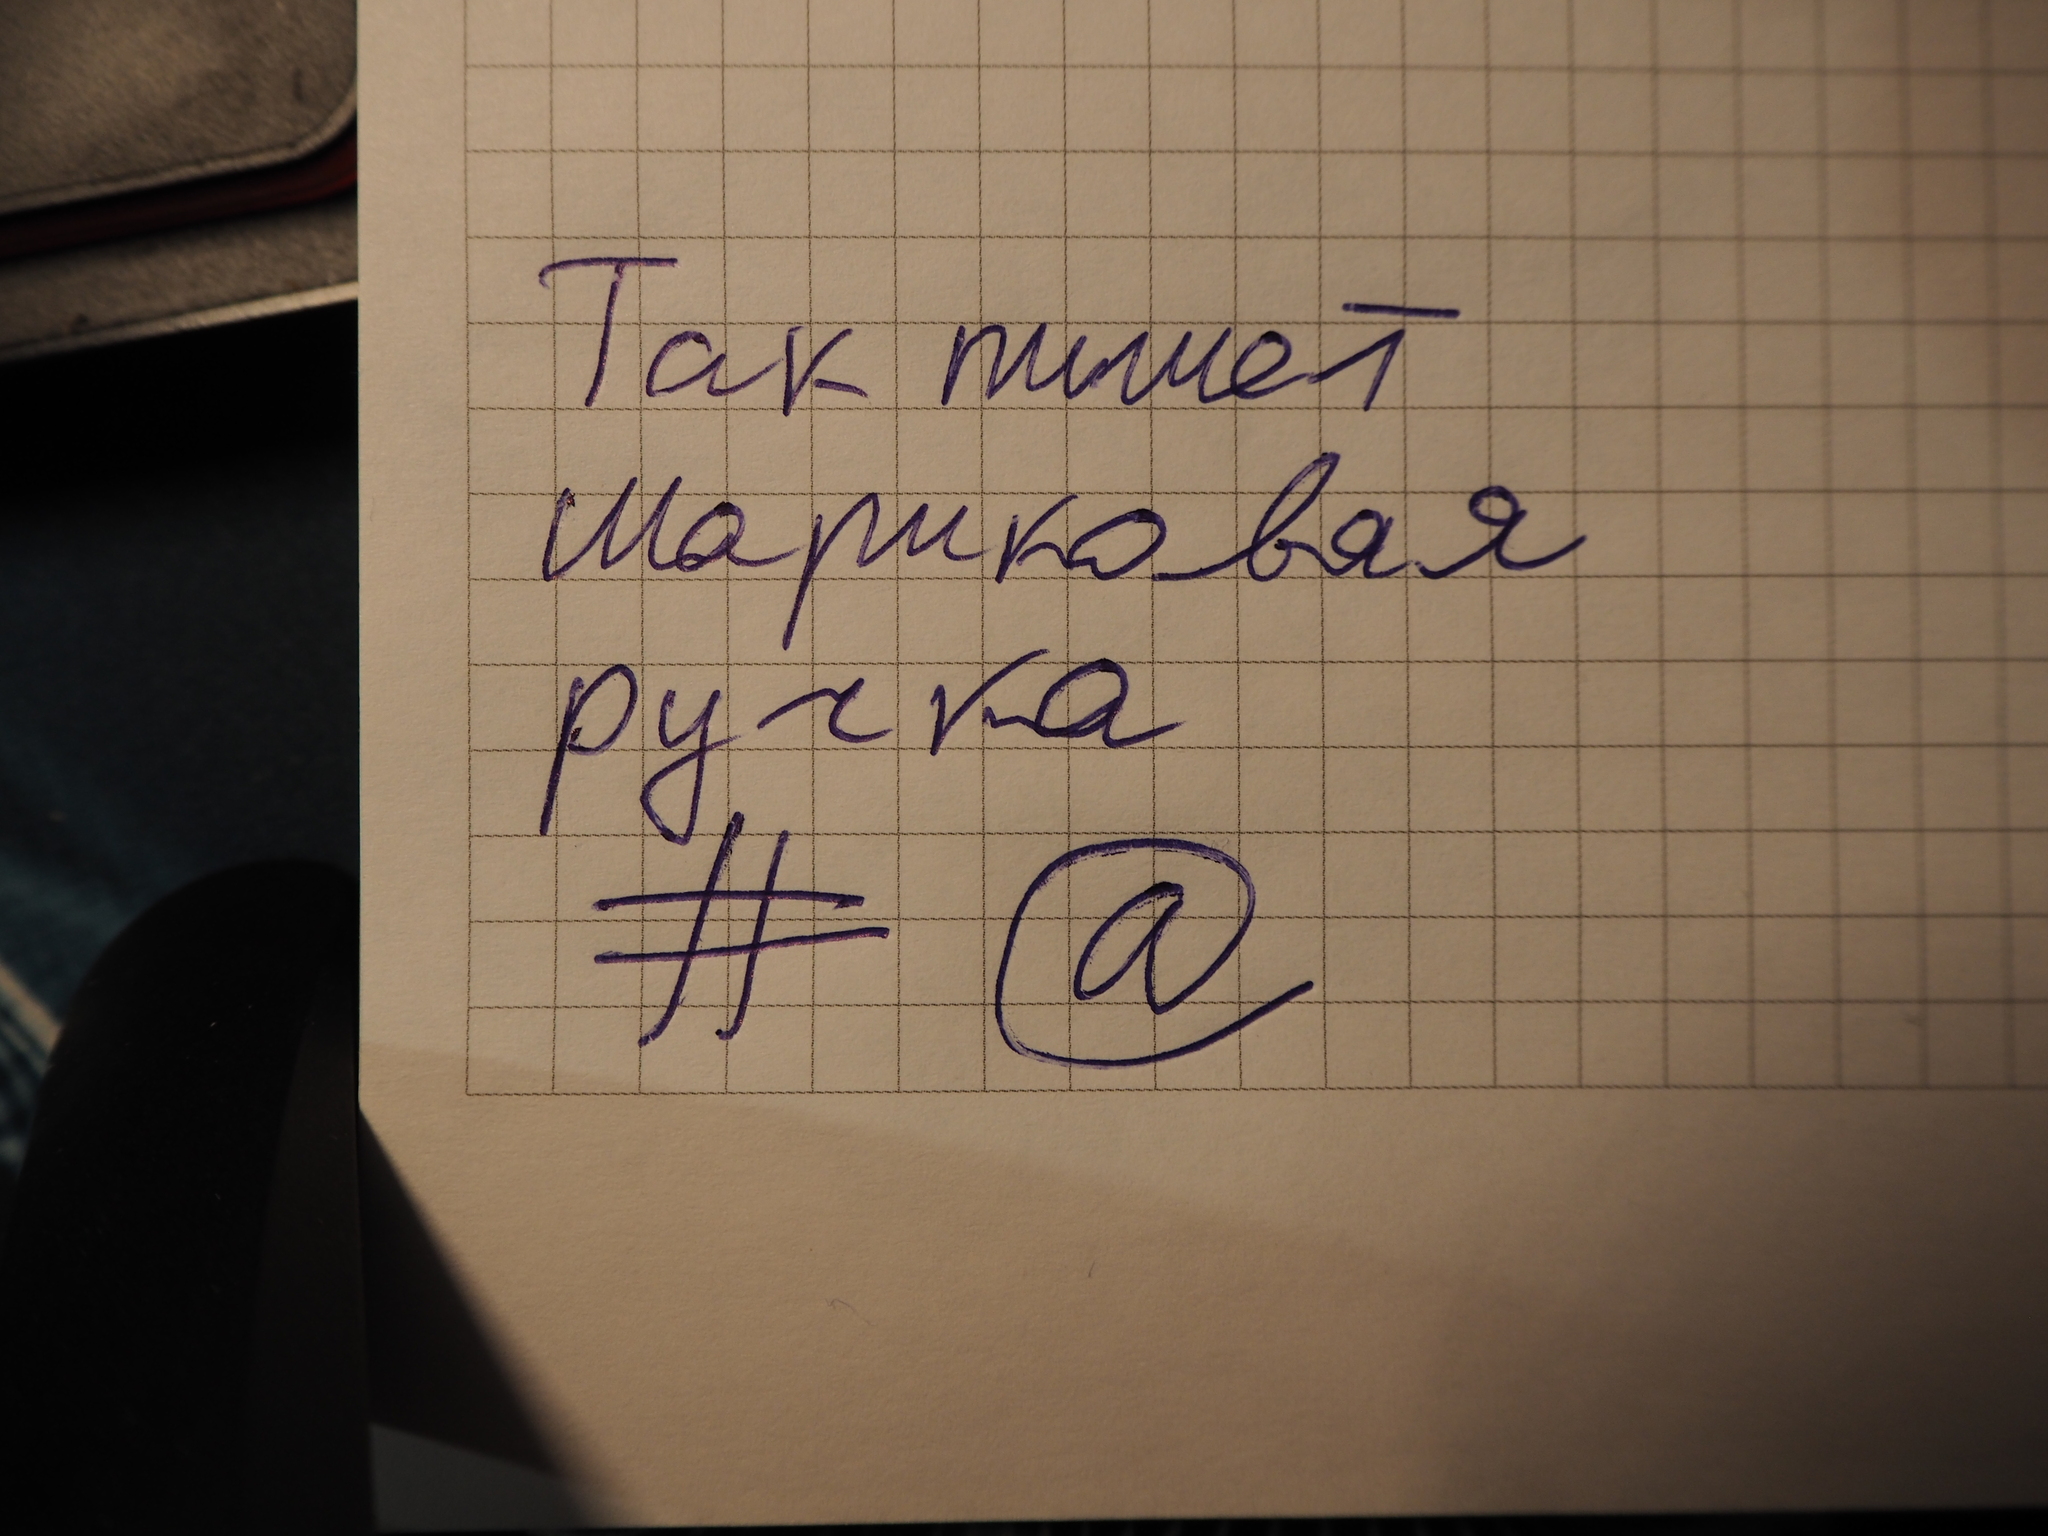 Так пишет
шариковая
ручка
# @